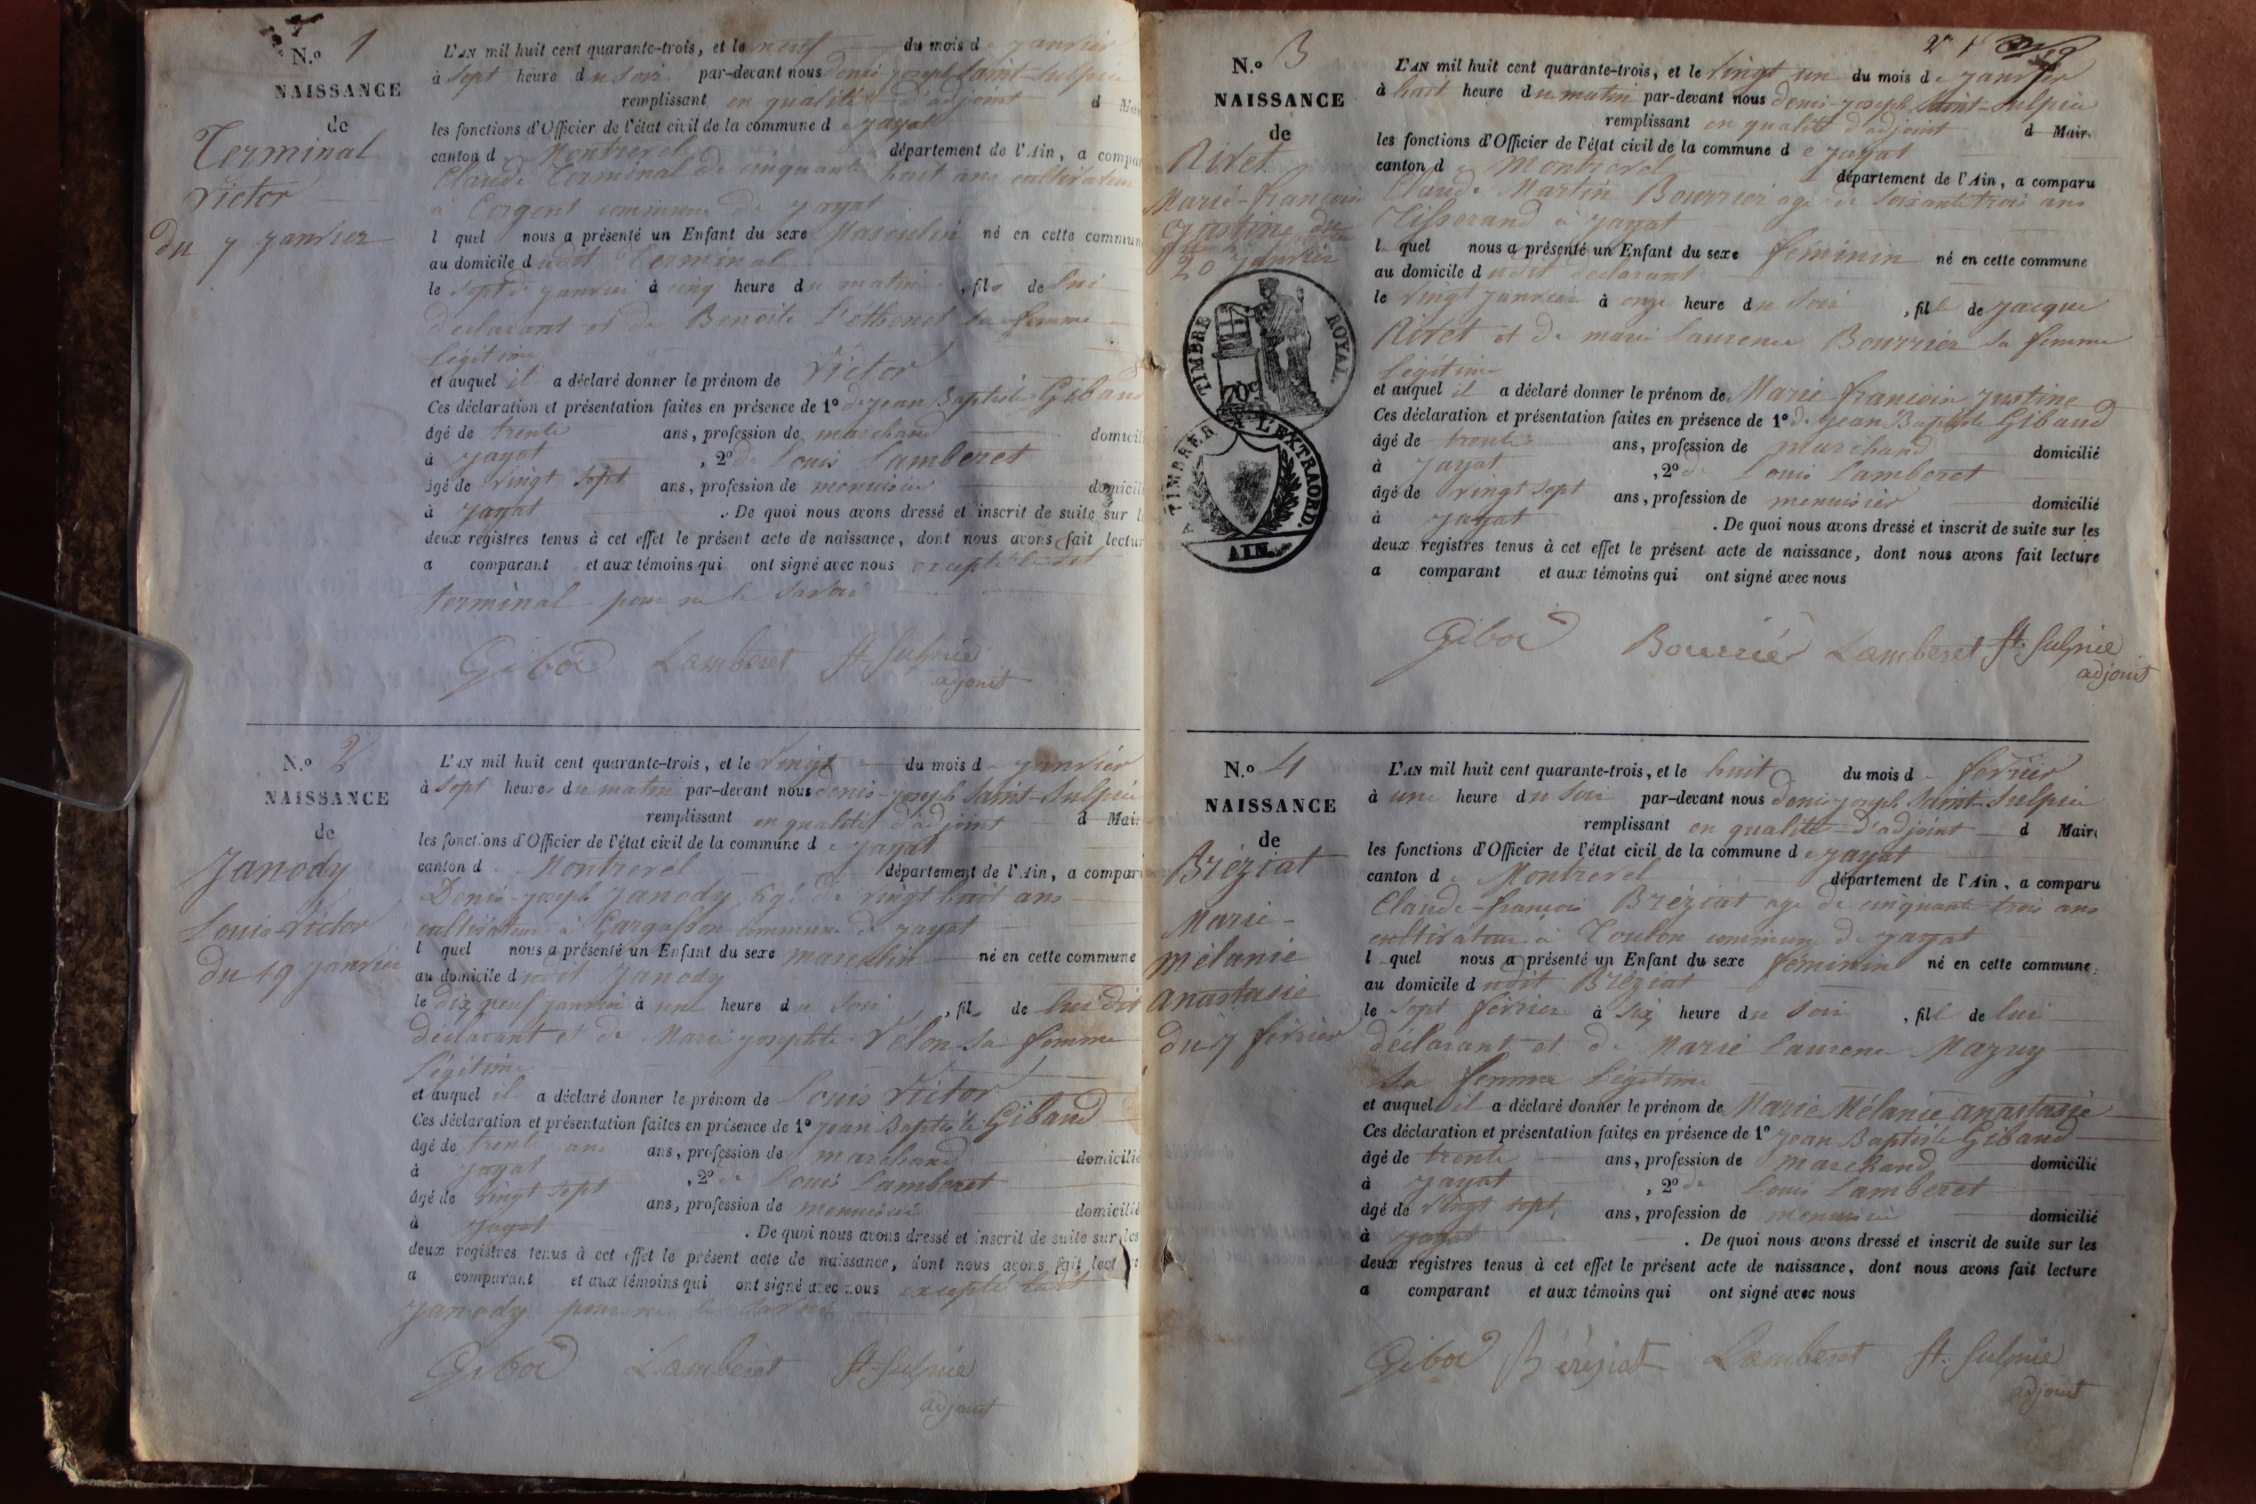 N.º 1
NAISSANCE
de
Terminal
Victor
du 7 Janvier
L'AN mil huit cent quarante-trois, et le neuf du mois de janvier
à sept heure du soir par-devant nous denis joseph Saint-Sulpice
remplissant en qualité d'adjoint d
les fonctions d'Officier de l'état civil de la commune de jayat
canton d Montrevel département de l'Ain, a
Claude Terminal de cinquante huit ans cultivateur
à Corgent commune de jayat
l quel nous a présenté un Enfant du sexe Masculin né en cette commun
au domicile dudit Terminal
le sept janvier à cinq heure du matin, fils de lui
déclarant et de Benoite sa femme
légitime
et auquel il a déclaré donner le prénom de Victor
Ces déclaration et présentation faites en présence de 1º de jean Baptiste Giband
âgé de trente ans, profession de marchand domicil
à jayat, 2º de Louis Lamberet
âgé de vingt sept ans, profession de menuisier domicil
à jayat. De quoi nous avons dressé et inscrit de suite sur l
deux registres tenus à cet effet le présent acte de naissance, dont nous avons fait lectur
a comparant et aux témoins qui ont signé avec nous excepté ledit
terminal pour ne le savoir
Gibod Lamberet St Sulpice
adjoint
N.º 2
NAISSANCE
de
Janody
Louis-Victor
du 19 janvier
L'AN mil huit cent quarante-trois, et le vingt du mois d janvier
à sept heures du matin par-devant nous denis-joseph Saint-Sulpice
remplissant en qualité d'adjoint d Mair
les fonctions d'Officier de l'état civil de la commune de jayat
canton d Montrevel département de l'Ain, a compar
Denis-joseph Janody âgé de vingt huit ans
cultivateur à Cargasson commune de jayat
l quel nous a présenté un Enfant du sexe masculin né en cette commune
au domicile dudit Janody
le dix neuf janvier à une heure du soir, fils de lui dit
déclarant et de Marie josephte Velon sa femme
légitime
et auquel il a déclaré donner le prénom de Louis Victor
Ces déclaration et présentation faites en présence de 1º jean Baptiste Giband
âgé de trente ans ans, profession de marchand domicilié
à jayat, 2º de Louis Lamberet
âgé de vingt sept ans, profession de menuisier domicilié
à jayat. De quoi nous avons dressé et inscrit de suite sur les
deux registres tenus à cet effet le présent acte de naissance, dont nous avons fait lect
a comparant et aux témoins qui ont signé avec nous excepté ledit
janody pour ne le savoir
Gibod Lamberet St Sulpice
adjoint
N.º 3
NAISSANCE
de
Rivet
Marie-françoise
justine du
20 janvier
TIMBRE ROYAL
TIMBRER A L'EXTRAORD.
AIN
L'AN mil huit cent quarante-trois, et le vingt un du mois de janvier
à huit heure du matin par-devant nous denis-joseph Saint-Sulpice
remplissant en qualité d'adjoint d Mair
les fonctions d'Officier de l'état civil de la commune de jayat
canton de Montrevel département de l'Ain, a comparu
Claude Martin Bourrier agé de soixante trois ans
Tisserand à jayat
l quel nous a présenté un Enfant du sexe féminin né en cette commune
au domicile dudit déclarant
le vingt janvier à onze heure du soir, fille de jacque
Rivet et de marie Laurence Bourrier sa femme
légitime
et auquel il a déclaré donner le prénom de Marie françoise justine
Ces déclaration et présentation faites en présence de 1º de jean Baptiste Giband
âgé de trente ans, profession de marchand domicilié
à jayat, 2º de Louis Lamberet
âgé de vingt sept ans, profession de menuisier domicilié
à jayat. De quoi nous avons dressé et inscrit de suite sur les
deux registres tenus à cet effet le présent acte de naissance, dont nous avons fait lecture
a comparant et aux témoins qui ont signé avec nous
Gibod Bourrié Lamberet St. Sulpice
adjoint
N.º 4
NAISSANCE
de
Bréziat
Marie-
mélanie
anastasie
du 7 février
L'AN mil huit cent quarante-trois, et le huit du mois d février
à une heure du soir par-devant nous denis joseph Saint-Sulpice
remplissant en qualité d'adjoint d Mair
les fonctions d'Officier de l'état civil de la commune de jayat
canton de Montrevel département de l'Ain, a comparu
Claude-françois Bréziat age de cinquante trois ans
cultivateur à Toulon commune de jayat
l quel nous a présenté un Enfant du sexe féminin né en cette commune
au domicile dudit Bréziat
le sept février à six heure du soir, fille de lui
déclarant et de Marie Laurence Mazuy
sa femme légitime
et auquel il a déclaré donner le prénom de Marie Mélanie anastasie
Ces déclaration et présentation faites en présence de 1º jean Baptiste Giband
âgé de trente ans, profession de marchand domicilié
à jayat, 2º de Louis Lamberet
âgé de vingt sept ans, profession de menuisier domicilié
à jayat. De quoi nous avons dressé et inscrit de suite sur les
deux registres tenus à cet effet le présent acte de naissance, dont nous avons fait lecture
a comparant et aux témoins qui ont signé avec nous
Gibod Bréziat Lamberet St. Sulpice
adjoint